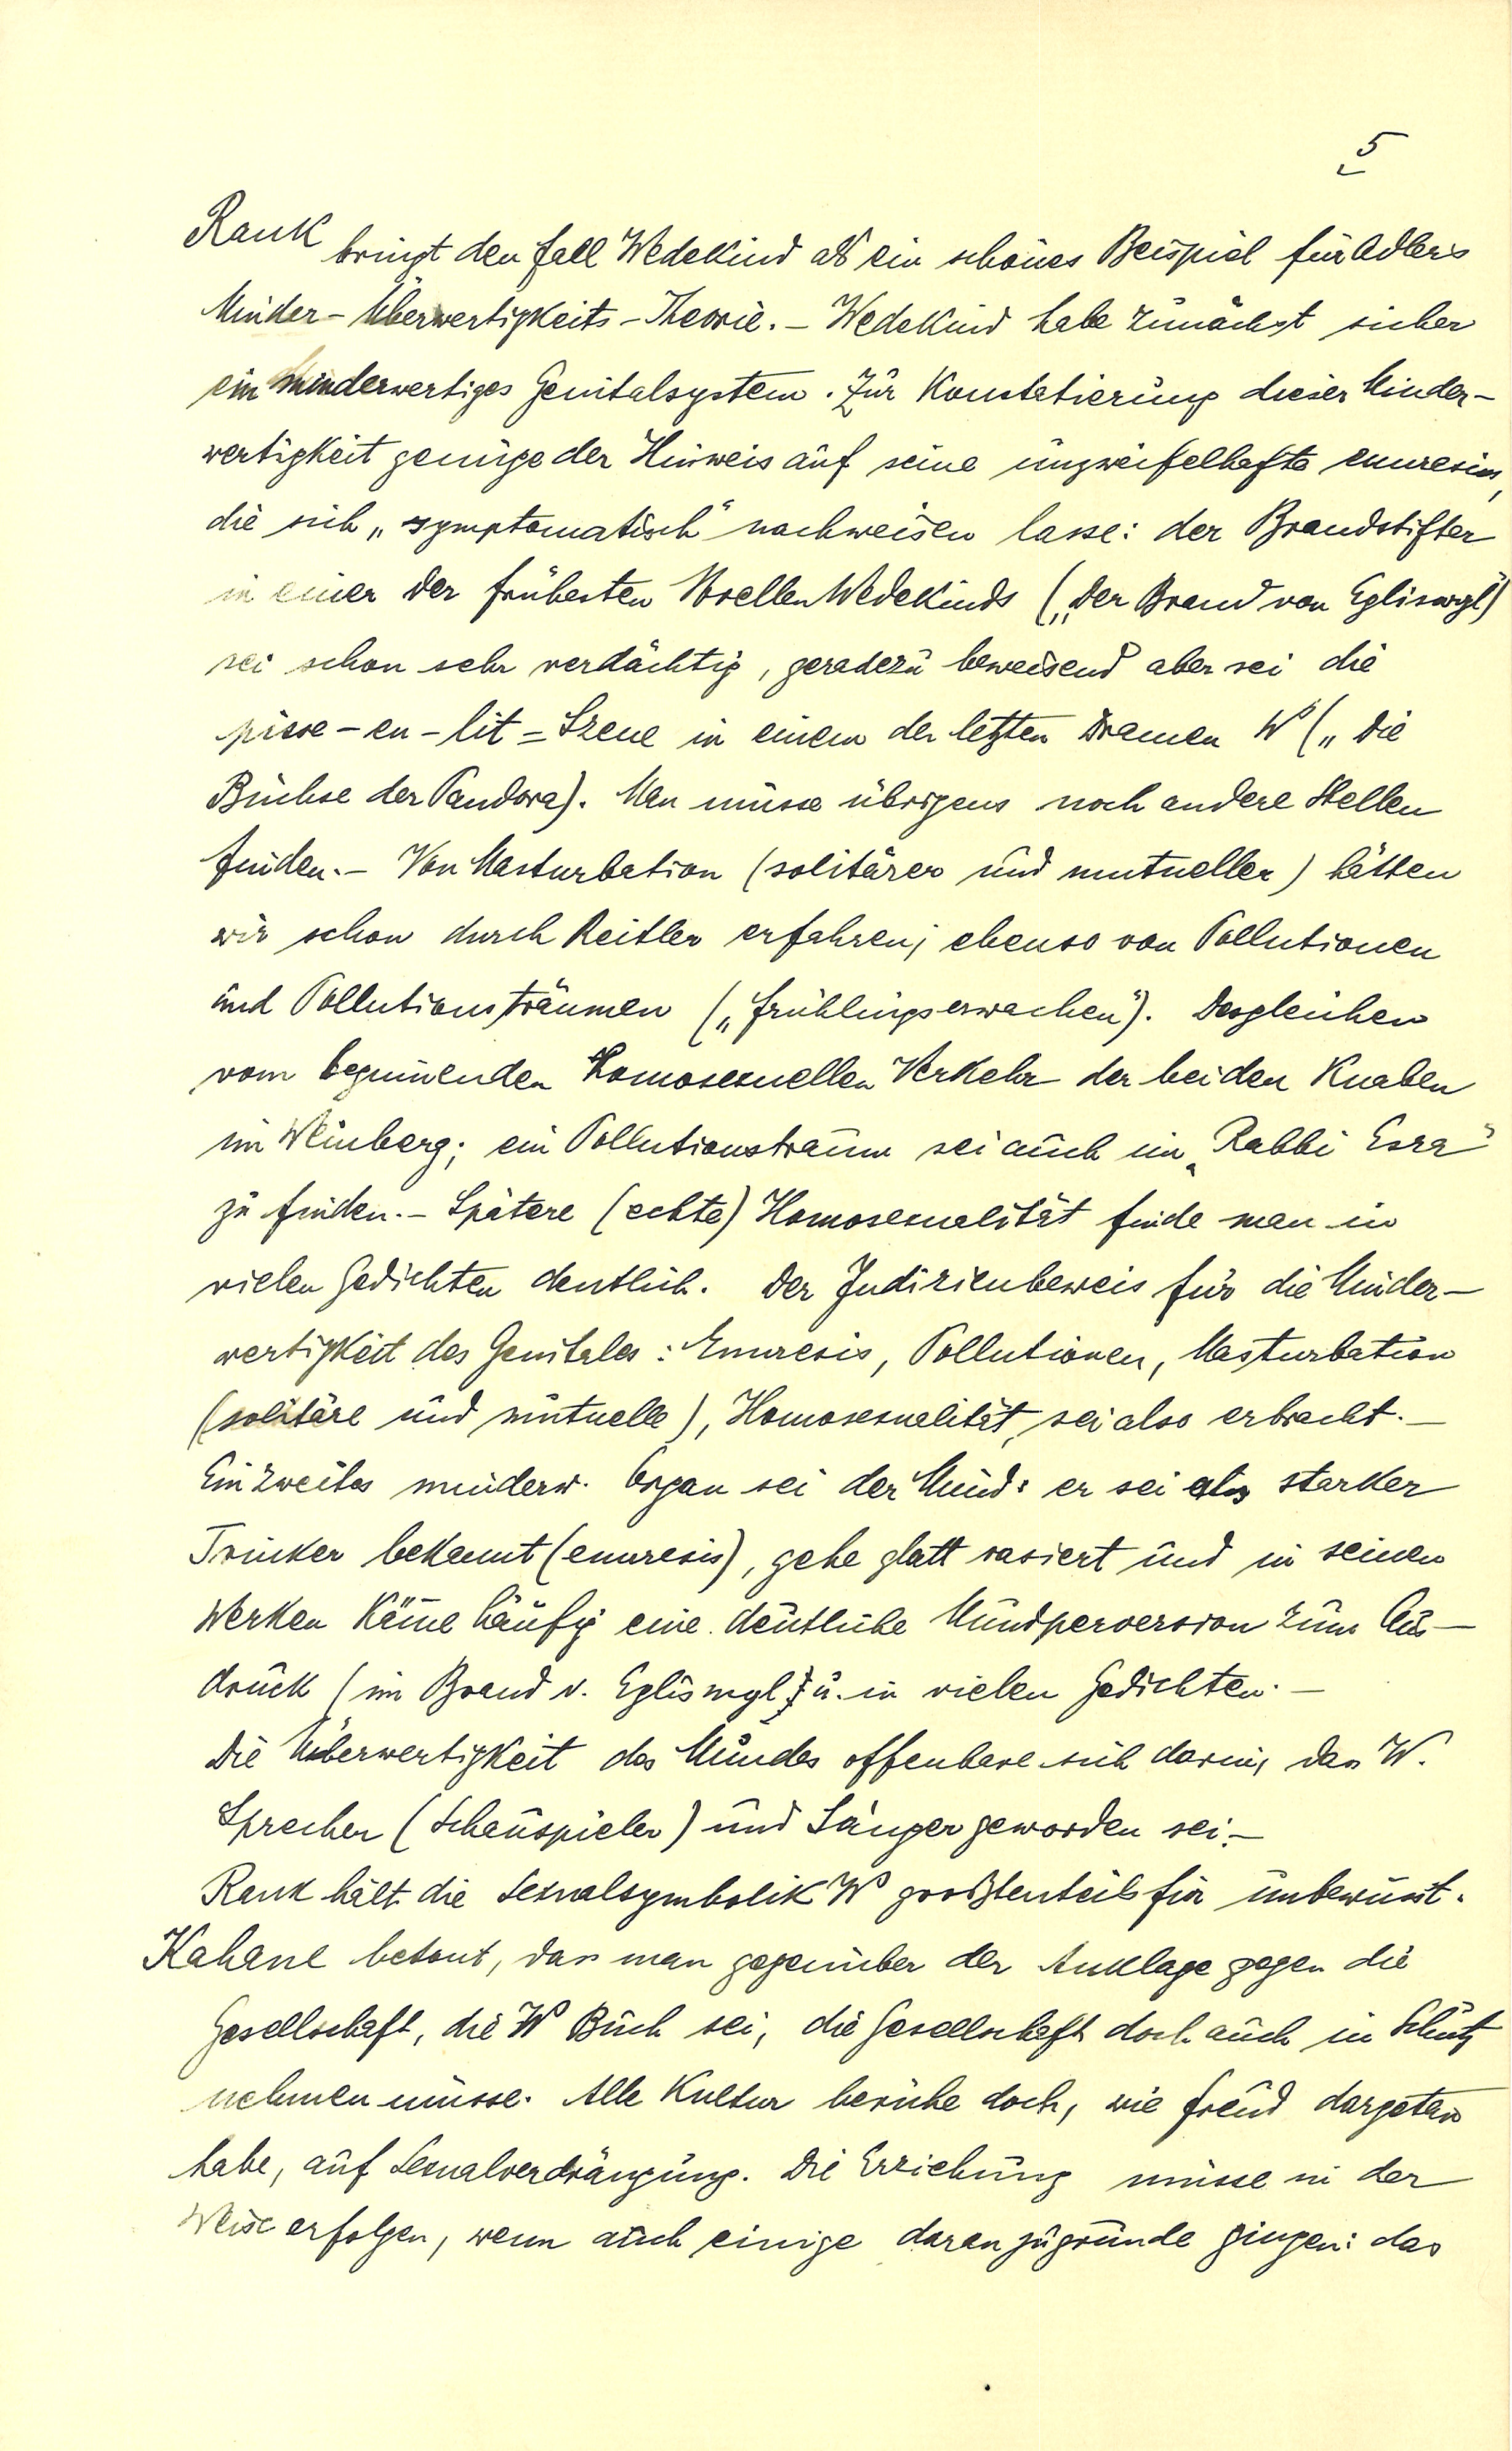 5
Rank bringt den Fall Wedekind als ein schönes Beispiel für Adlers
Minder-Überwertigkeits-Theorie. – Wedekind habe zunächst sicher
ein minderwertiges Genitalsystem. Zur Konstatierung dieser Minder-
wertigkeit genüge der Hinweis auf seine unzweifelhafte enuresis,
die sich „symptomatisch“ nachweisen lasse: der Brandstifter
in einer der frühesten Novellen Wedekinds („Der Brand von Egliswyl“)
sei schon sehr verdächtig, geradezu beweisend aber sei die
pisse-en-lit=Szene in einem der letzten Dramen Ws („Die
Büchse der Pandora). Man müsse übrigens noch andere Stellen
finden. – Von Masturbation (solitärer und mutueller) hätten
wir schon durch Reitler erfahren; ebenso von Pollutionen
und Pollutionsträumen („Frühlingserwachen“). Desgleichen
vom beginnenden homosexuellen Verkehr der beiden Knaben
im Weinberg; ein Pollutionstraum sei auch im „Rabbi Esra“
zu finden. – Spätere (echte) Homosexualität finde man in
vielen Gedichten deutlich. Der Indizienbeweis für die Minder-
wertigkeit des Genitales: Enuresis, Pollutionen, Masturbation
(solitäre und mutuelle), Homosexualität, sei also erbracht. –
Ein zweites minderw. Organ sei der Mund: er sei als starker
Trinker bekannt (enuresis), gehe glatt rasiert und in seinen
Werken käme häufig eine deutliche Mundperversion zum Aus-
druck (im Brand v. Egliswyl) u. in vielen Gedichten. –
Die Überwertigkeit des Mundes offenbare sich darin, dass W.
Sprecher (Schauspieler) und Sänger geworden sei. –
Rank hält die Sexualsymbolik Ws großtenteils für unbewusst.
Kahane betont, dass man gegenüber der Anklage gegen die
Gesellschaft, die Ws Buch sei, die Gesellschaft doch auch in Schutz
nehmen müsse. Alle Kultur beruhe doch, wie Freud dargetan
habe, auf Sexualverdrängung. Die Erziehung müsse in der
Weise erfolgen, wenn auch einige daran zugrunde gingen: das